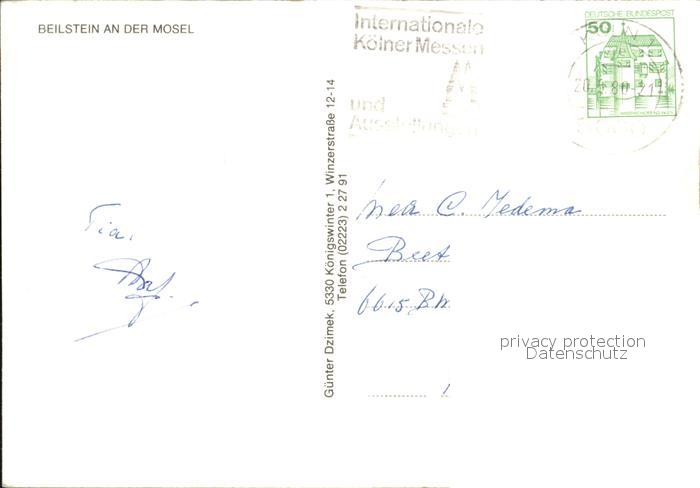 BEILSTEIN AN DER MOSEL
Internationale
Kölner Messen
und
Ausstellungen
DEUTSCHE BUNDESPOST
50
KÖLN
Tia.
Günter Dzimek, 5330 Königswinter 1, Winzerstraße 12-14
Telefon (02223) 2 27 91
C. Tedema
6615
privacy protection
Datenschutz